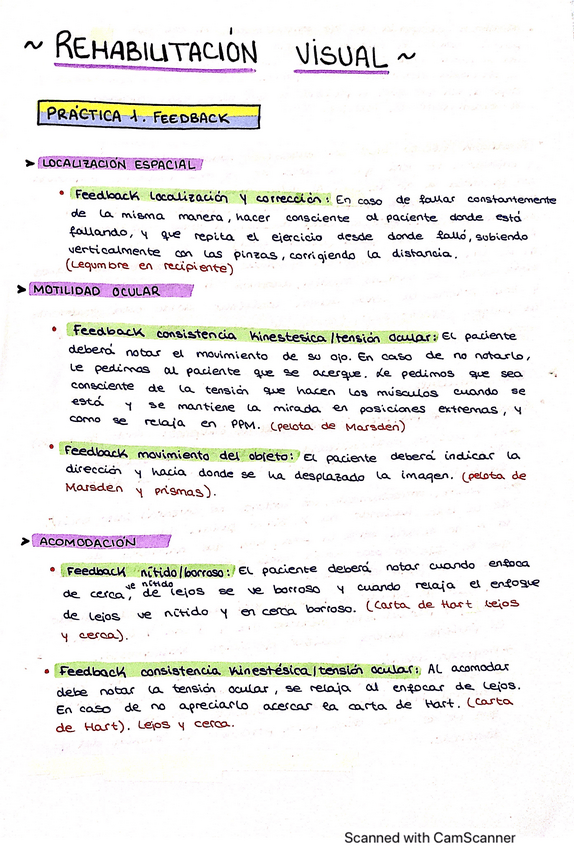 ~ REHABILITACIÓN VISUAL ~
PRÁCTICA 1. FEEDBACK
➤ LOCALIZACIÓN ESPACIAL
• Feedback localización y corrección: En caso de fallar constantemente
de la misma manera, hacer consciente al paciente donde está
fallando, y que repita el ejercicio desde donde falló, subiendo
verticalmente con las pinzas, corrigiendo la distancia.
(Legumbre en recipiente)
➤ MOTILIDAD OCULAR
• Feedback consistencia kinestesica/tensión ocular: El paciente
deberá notar el movimiento de su ojo. En caso de no notarlo,
le pedimos al paciente que se acerque. Le pedimos que sea
consciente de la tensión que hacen los músculos cuando se
está y se mantiene la mirada en posiciones extremas, y
como se relaja en PPM. (pelota de Marsden)
• Feedback movimiento del objeto: El paciente deberá indicar la
dirección y hacia donde se ha desplazado la imagen. (pelota de
Marsden y prismas).
➤ ACOMODACIÓN
• Feedback nítido/borroso: El paciente deberá notar cuando enfoca
de cerca, ve nítido de lejos se ve borroso y cuando relaja el enfoque
de lejos ve nítido y en cerca borroso. (Carta de Hart lejos
y cerca).
• Feedback consistencia kinestésica/tensión ocular: Al acomodar
debe notar la tensión ocular, se relaja al enfocar de lejos.
En caso de no apreciarlo acercar la carta de Hart. (Carta
de Hart). Lejos y cerca.
Scanned with CamScanner